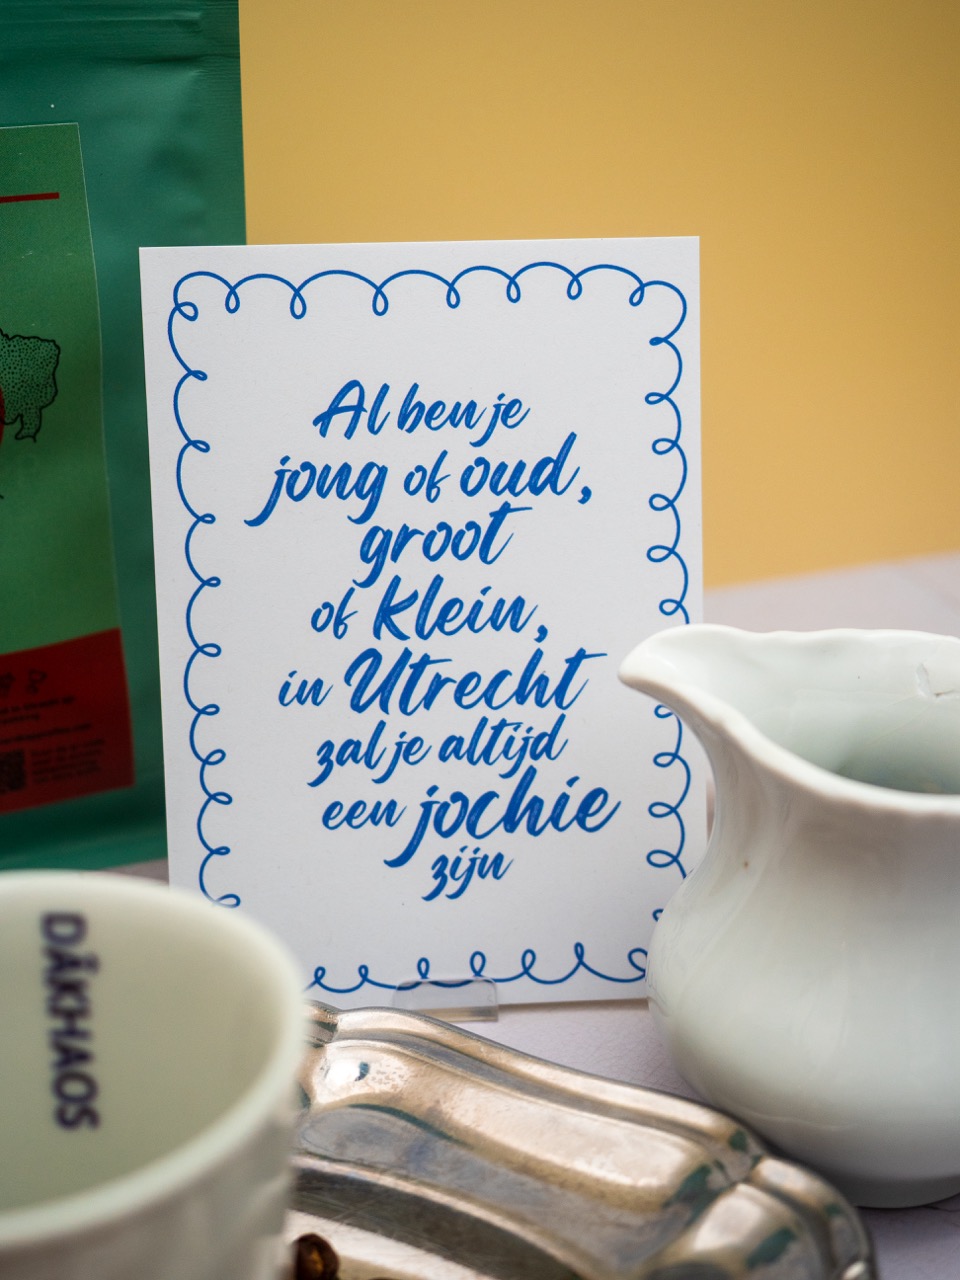 Al ben je
jong of oud,
groot
of klein,
in Utrecht
zal je altijd
een jochie
zijn
DÅKHAOS